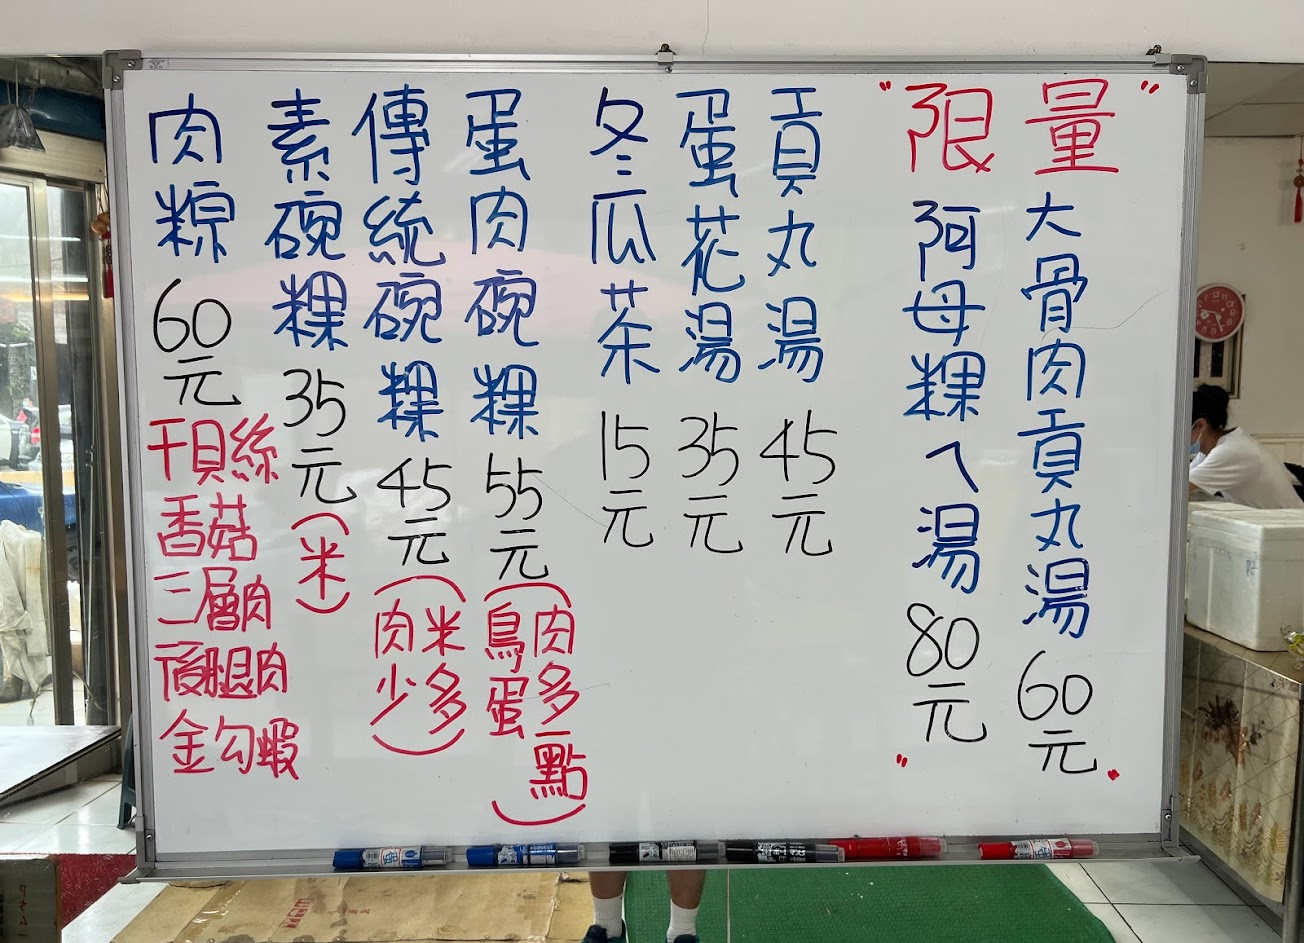 "限量"
大骨肉貢丸湯 60元
阿母粿ㄟ湯 80元
貢丸湯 45元
蛋花湯 35元
冬瓜茶 15元
蛋肉碗粿 55元
(肉多一點
鳥蛋)
傳統碗粿 45元
(米多
肉少)
素碗粿 35元(米)
肉粽 60元
干貝絲
香菇
三層肉
後腿肉
金勾蝦